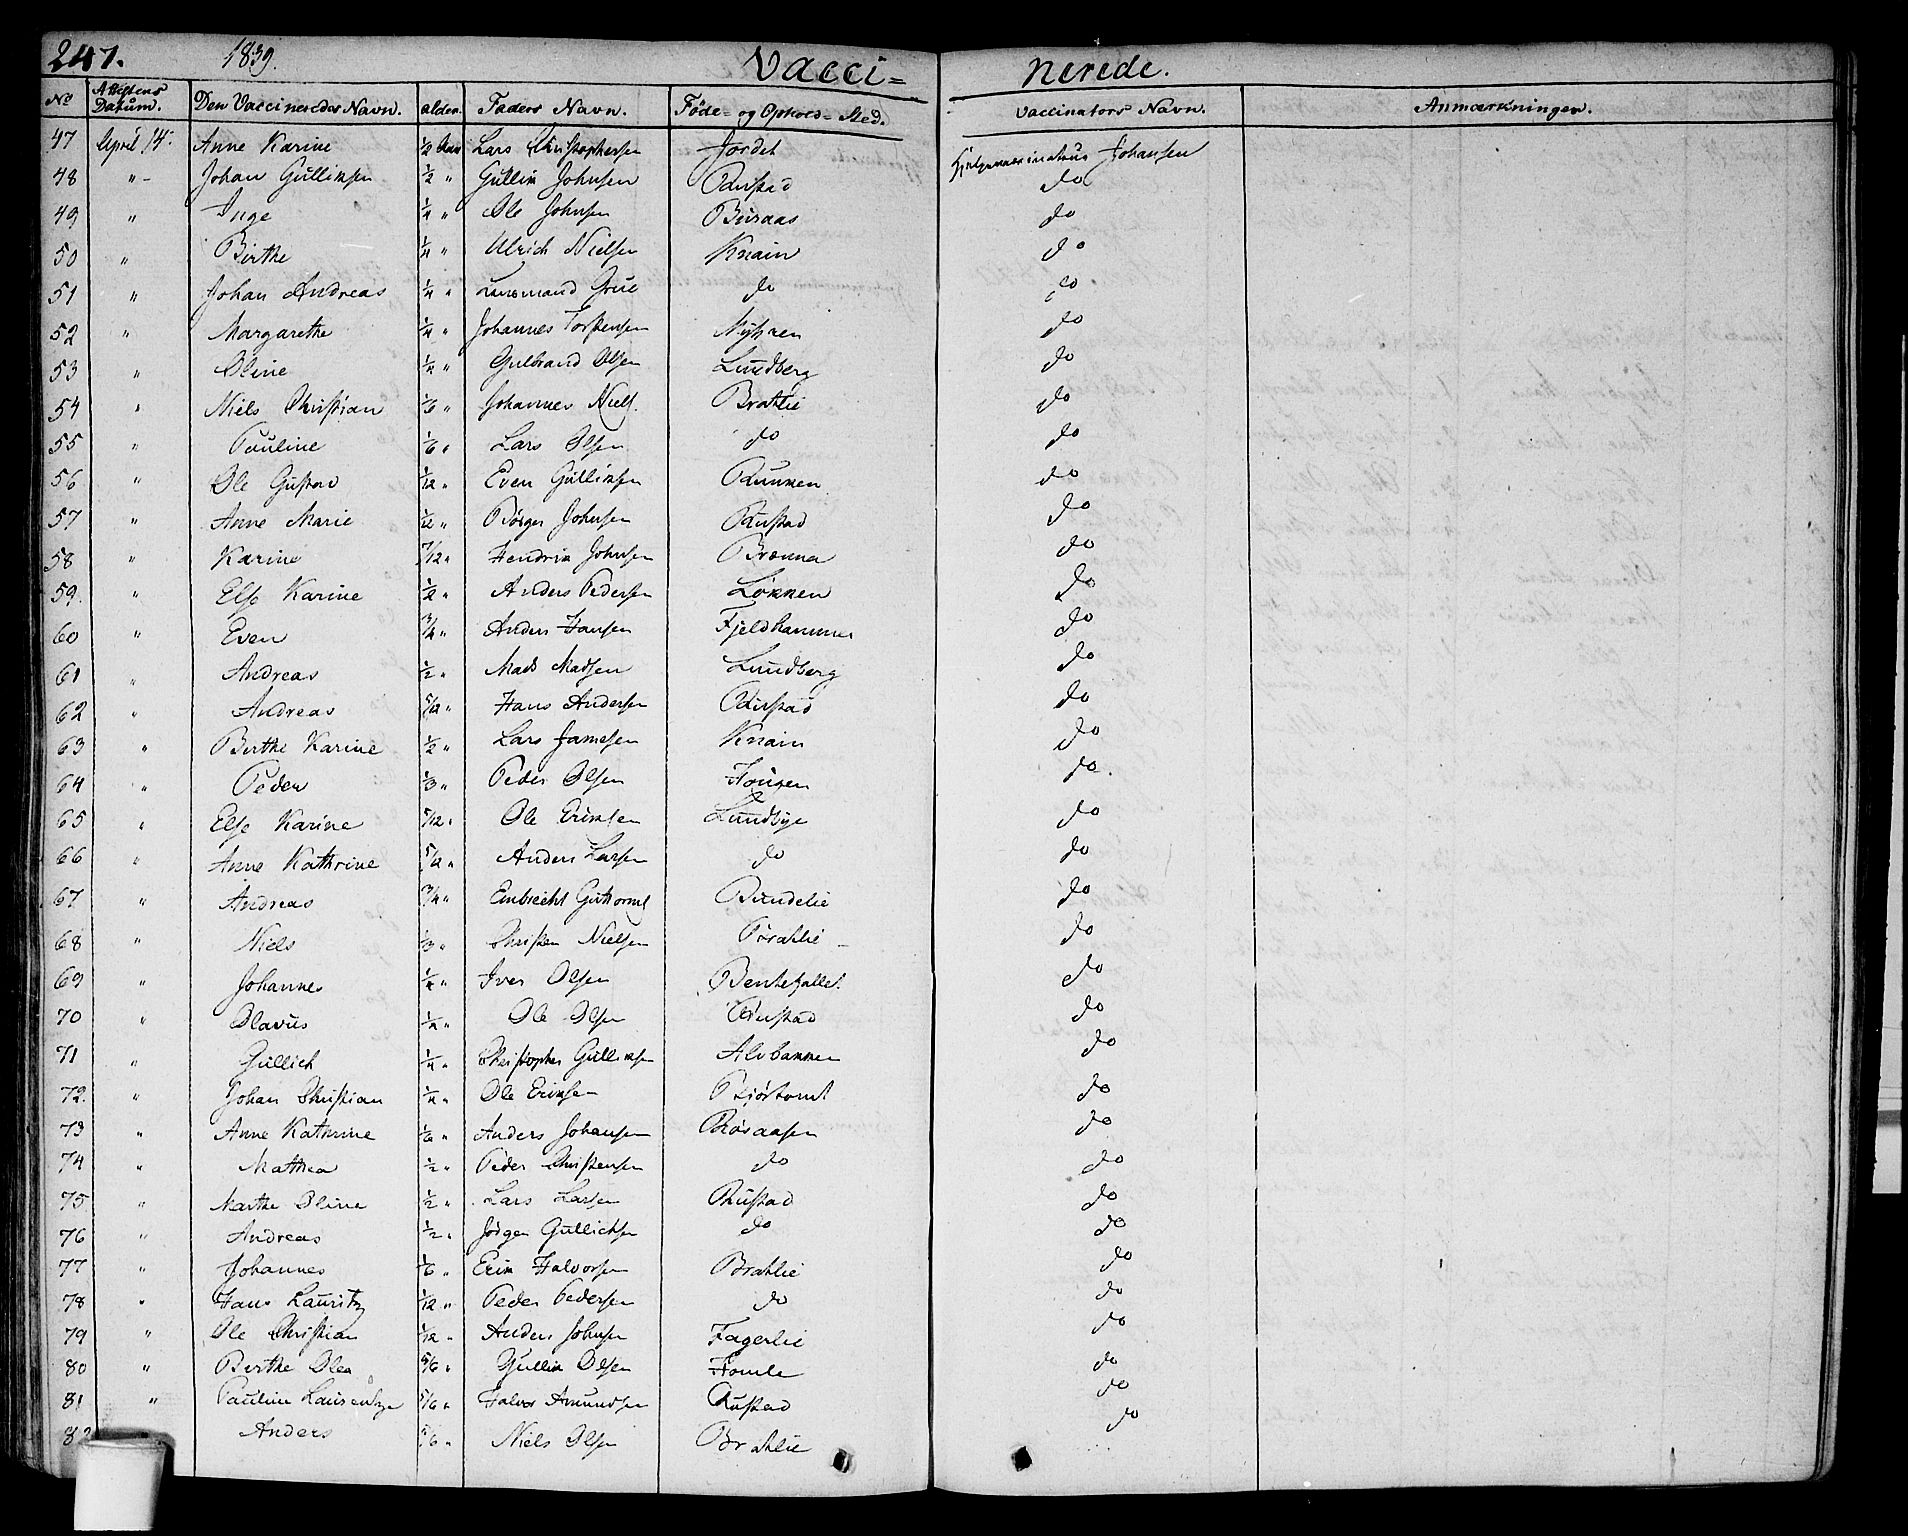 247. 1839. Vacci= nerede.
No Attestens Datum. Den Vaccineredes Navn. alder. Faders Navn. Føde= og Ophold= Sted. Vaccinators Navn. Anmærkninger.
47 April 14. Anne Karine 1/2 Aar Lars Christophersen Jordet Hjelpevaccinateur Johansen
48 " Johan Gulliksen 1/2 " Gullik Johnsen Rustad do
49 " Inge 1/4 " Ole Johnsen Buraas do
50 " Birthe 1/4 " Ulrich Nielsen Knain do
51 " Johan Andreas 1/4 " Lensmand Grue do do
52 " Margarethe 1/4 " Johannes Torstensen do
53 " Oline 1/4 " Gulbrand Olsen Lundberg do
54 " Niels Christian 1/6 " Johannes Niels. Bratlie do
55 " Pauline 1/6 " Lars Olsen do do
56 " Ole Gustav 1/12 " Even Gulliksen do
57 " Anne Marie 1/12 " Børger Johnsen Rustad do
58 " Karine 7/12 " Hendrik Johnsen Brænna do
59. " Else Karine 1/2 " Anders Pedersen Løkken do
60 " Even 3/4 " Anders Hansen Fjeldhammer do
61 " Andreas 1/2 " Mads Madsen Lundberg do
62 " Andreas " Hans Andersen Rustad do
63 " Berthe Karine 1/2 " Lars Jamesen Knain do
64 " Peder 1/3 " Peder Olsen Hougen do
65 " Else Karine 5/12 " Ole Eriksen Lundbye do
66 " Anne Kathrine " Anders Larsen do do
67 " Andreas 3/4 " Embrecht Guthorms Bundelie do
68 " Niels 1/3 " Christen Nielsen Bratlie do
69 " Johannes 1/4 " Iver Olsen do
70 " Olavus 1/4 " Ole Olsen Rustad do
71 " Gullich 1/4 " Christopher Gulliksen Alvbakken do
72. " Johan Christian 1/4 " Ole Eriksen do
73 " Anne Kathrine 1/6 " Anders Johansen Røsaasen do
74 " Mathea 1/2 " Peder Christensen do do
75 " Marthe Oline 1/2 " Lars Larsen Rustad do
76 " Andreas 1/2 " Jørgen Gullichsen do do
77 " Johannes 1/6 " Erik Halvorsen Bratlie do
78 " Hans Lauritz 1/12 " Peder Pedersen do do
79 " Ole Christian 1/12 " Anders Johnsen Fagerlie do
80 " Berthe Olea 5/6 " Gullik Olsen Homle do
81 " Pauline 5/6 " Halvor Amundsen Rustad do
82 Anders 5/6 " Niels Olsen Bratlie do